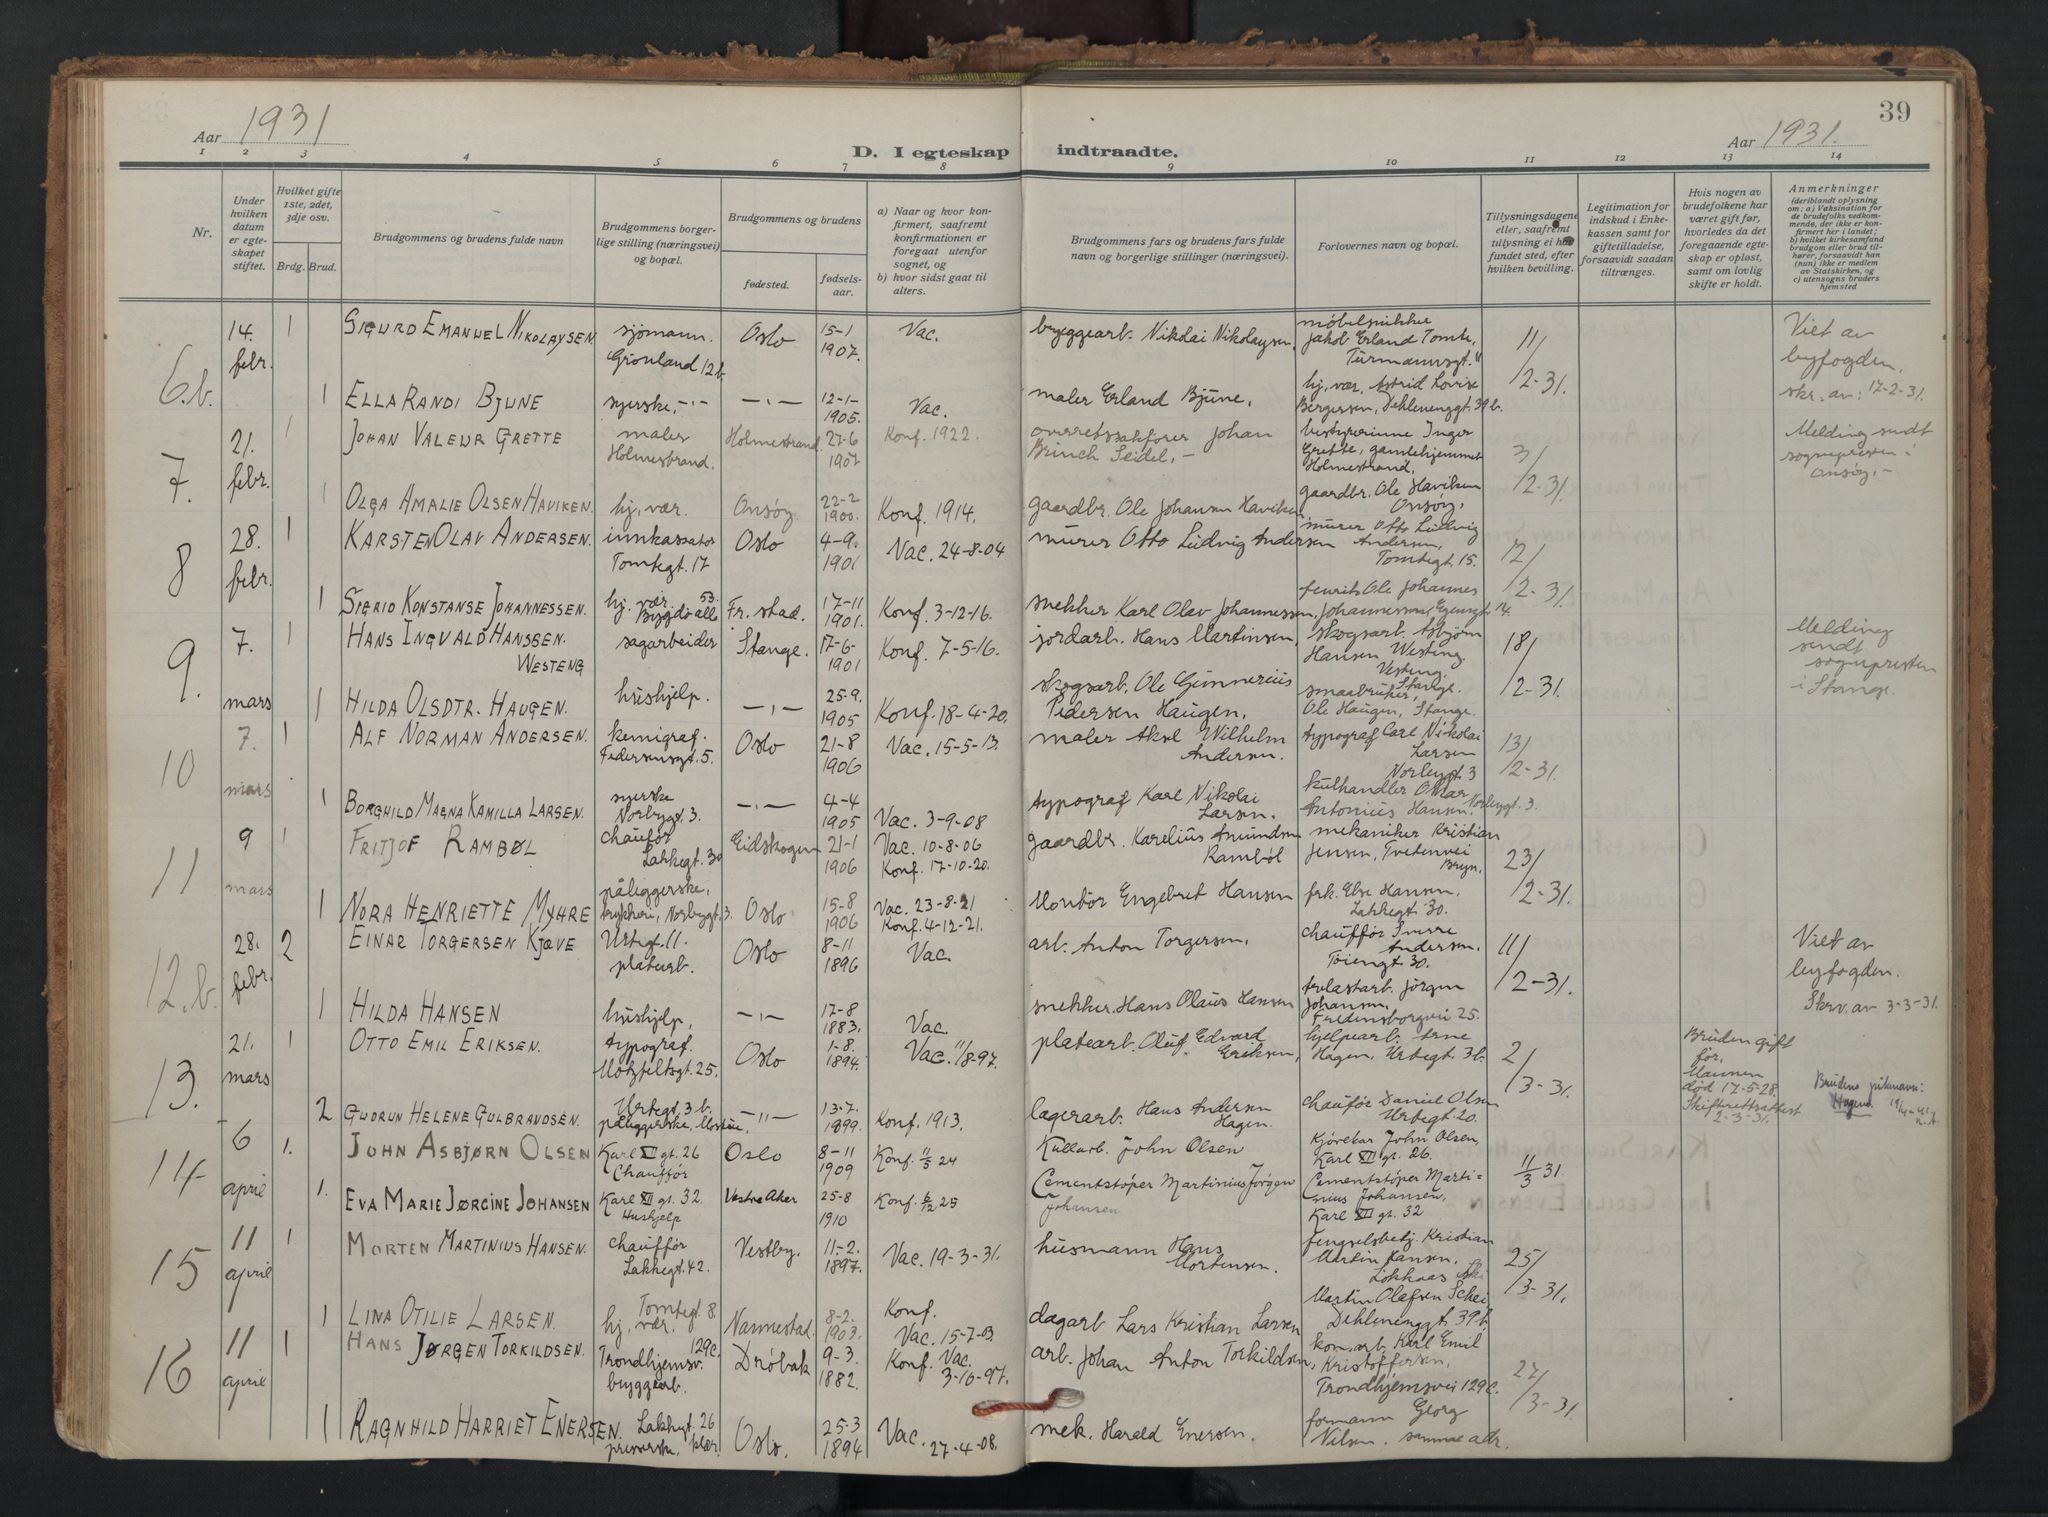 39
Aar 1931
Aar 1931.
D. I egteskap indtraadte.
1 2 3 4 5 6 7 8 9 10 11 12 13 14
Nr.
Under hvilken datum er egteskapet stiftet.
Hvilket gifte 1ste, 2det, 3dje osv.
Brdg. Brud.
Brudgommens og brudens fulde navn
Brudgommens borgerlige stilling (næringsvei) og bopæl.
Brudgommens og brudens
fødested.
fødselsaar.
a) Naar og hvor konfirmert, saafremt konfirmationen er foregaat utenfor sognet, og
b) hvor sidst gaat til alters.
Brudgommens fars og brudens fars fulde navn og borgerlige stillinger (næringsvei).
Forlovernes navn og bopæl.
Tillysningsdagene eller, saafremt tillysning ei har fundet sted, efter hvilken bevilling.
Legitimation for indskud i Enkekassen samt for giftetilladelse, forsaavidt saadan tiltrænges.
Hvis nogen av brudefolkene har været gift før, hvorledes da det foregaaende egteskap er opløst, samt om lovlig skifte er holdt.
Anmerkninger (deriblandt oplysning om: a) Vaksination for de brudefolks vedkommende, der ikke er konfirmert her i landet; b) hvilket kirkesamfund brudgom eller brud tilhører, forsaavidt han (hun) ikke er medlem av Statskirken, og c) utensogns bruders hjemsted
6.b. 14. febr. 1 Sigurd Emanuel Nikolaysen sjømann. Grønland 12b. Oslo 15-1 1907. Vac. bryggearb. Nikolai Nikolaysen. møbelsnikker Jakob Erland Tomte, 11/2-31. Viet av byfogden, skr. av: 17-2-31.
1 Ella Randi Bjune syerske, -"- -"- 12-1- 1905. Vac. maler Erland Bjune. hj. vær. Astrid Lovise Bergersen, Dehlenenggt. 39b.
7. 21. febr. 1 Johan Valeur Grette maler Holmestrand. Holmestrand 27-6 1907 Konf. 1922. overretssakfører Johan Brinch Seidel, - bestyrerinne Inger Grette, gamlehjemmet Holmestrand. 3/2-31. Melding sendt sognepresten i Onsøy. -
1 Olga Amalie Olsen Haviken. hj. vær. Onsøy. 22-2 1900. Konf. 1914. gaardbr. Ole Johansen Haviken gaardbr. Ole Haviken Onsøy.
8 28. febr. 1 Karsten Olav Andersen. innkassator Tomtegt. 17 Oslo 4-9. 1901 Vac. 24-8-04 murer Otto Ludvig Andersen murer Otto Ludvig Andersen, Tomtegt. 15. 12/2-31.
1 Sigrid Konstanse Johannessen. hj. vær. Bygdø allé 53. Fr. stad. 17-11 1901. Konf. 3-12-16. snekker Karl Olav Johannessen, Ole Johannes Johannessen, 14.
9. 7. mars 1 Hans Ingvald Hanssen. Westeng sagarbeider Stange. 17-6- 1901 Konf. 7-5-16. jordarb. Hans Martinsen, skogsarb. Asbjørn Hansen Westeng. Vesteng. Stange. 18/2-31. Melding sendt sognepresten i Stange.
1 Hilda Olsdtr. Haugen. hushjelp. -"- 25-9. 1905 Konf. 18-4-20. skogsarb. Ole Gunnerius Pedersen Haugen. smaabruker, Ole Haugen, Stange.
10 7. mars 1 Alf Norman Andersen. kemigraf. Pedersensgt. 5. Oslo 21-8 1906 Vac. 15-5-13. maler Aksel Wilhelm Andersen. typograf Carl Nikolai Larsen Norbygt. 3 13/2-31.
1 Borghild Magna Kamilla Larsen. syerske Norbygt. 3. -"- 4-4 1905 Vac. 3-9-08 typograf Karl Nikolai Larsen. kulhandler Omar Antonius Hansen. Norbygt. 3.
11 9 mars 1 Fritjof Rambøl chauffør Lakkegt. 30 Eidskogen 21-1 1906 Vac. 10-8-06 Konf. 17-10-20. gaardbr. Karelius Amundsen Rambøl mekaniker Kristian Jensen, Tvetenvei Bryn. 23/2-31.
1 Nora Henriette Myhre påleggerske, trykkeri, Norbygt. 3. Oslo 15-8 1906 Vac. 23-8-21 Konf. 4-12-21. Montør Engebret Hansen frk. Else Hansen, Lakkegt. 30.
12.b. 28. febr. 2 Einar Torgersen Kjøve Urtegt. 11. platearb. Oslo 8-11 1896 Vac. arb. Anton Torgersen. chauffør Sverre Andersen. Tøiengt. 30. 11/2-31. Viet av byfogden. Skrv. av 3-3-31.
1 Hilda Hansen hushjelp, -"- 17-8 1883. Vac. snekker. Hans Olaus Hansen Jørgen Johansen, Fredensborgvei 25.
13. 21. mars 1 Otto Emil Eriksen. typograf. Motzfeltsgt. 25. Oslo 1-8. 1894. Vac. 11/8-97. platearb. Oluf Edvard Eriksen, hjelpearb. Arne Hagen, Urtegt. 3b. 2/3-31. Bruden gift før. Mannen død 17-5-28. Skifterettsattest 2-3-31. Brudens pikenavn: Hagen.
2 Gudrun Helene Gulbrandsen. Urtegt. 3b. påleggerske, -"- 13-7. 1899. Konf. 1913. lagerarb. Hans Andersen Hagen. chauffør Daniel Olsen Urtegt. 20.
14 6 april 1. John Asbjørn Olsen Karl XII gt. 26 Chauffør Oslo 8-11 1909 Konf. 11/5 24 Kullarb. John Olsen Kjørebas John Olsen, Karl XII gt. 26. 11/3 31.
1. Eva Marie Jørgine Johansen Karl XII gt. 32. Hushjelp Vestre Aker 25-8 1910 Konf. 6/12 25 Cementstøper Martinius Jørgen Johansen Cementstøper Martinius Johansen, Karl XII gt. 32
15 11 april 1 Morten Martinius Hansen. chauffør Lakkegt. 42. Vestby. 11-2. 1897. Vac. 19-3-31. husmann Hans Mortensen. fengselsbetj. Kristian Martin Hansen. Ski 25/3-31.
1 Lina Otilie Larsen. Tomtegt. 8. hj. vær. Nannestad. 8-2. 1903. Konf. Vac. 15-7-03. dagarb Lars Kristian Larsen Martin Olafsen Schei Dehlenenggt. 39b.
16 11 april 1 Hans Jørgen Torkildsen. Trondhjemsv. 129c. bryggearb. Drøbak 9-3. 1882. Konf. Vac. 3-10-97. arb. Johan Anton Torkildsen, kom. arb. Karl Emil Kristoffersen, Trondhjemsvei 129c. 27/3-31.
1 Ragnhild Harriet Enersen. Lakkegt. 26 presserske. klær Oslo. 25-3 1894 Vac. 27-4-08. mek. Harald Enersen. formann Georg Nilsen. samme adr.